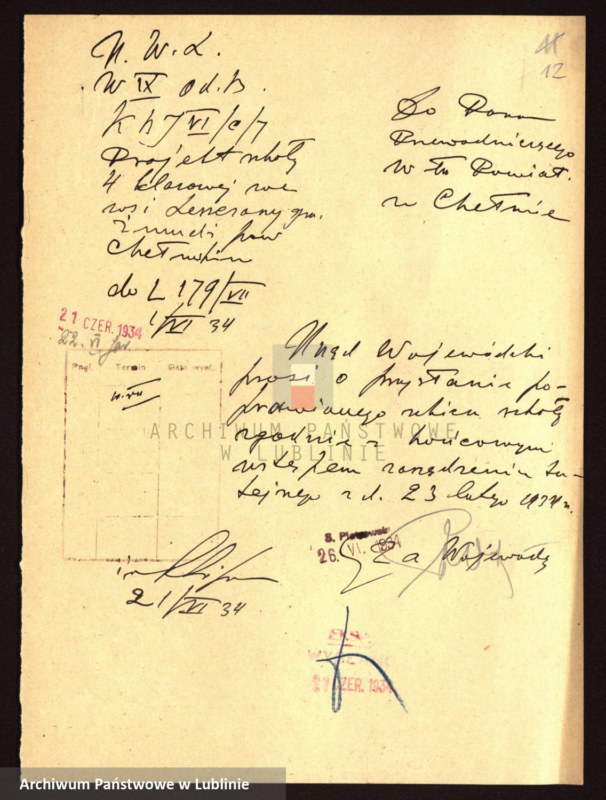 U. W. L.
W IX Od. B.
K B J VI/c/7
Projekt szkoły
4 klasowej we
wsi Leszczany gm.
Żmudź pow
Chełmskim
do L 179/VII
1/VI 34
12
Do Pana
Przewodniczącego
Wydz. Powiat.
w Chełmie
21 CZER. 1934
22. VI
Pogl. Termin Data wyst.
Urząd Wojewódzki
prosi o przysłanie po-
prawionego szkicu szkoły
zgodnie z końcowym
ustępem zarządzenia tu-
tejnego z d. 23 lutego 1934 r.
S. Piotrowski
26. VI. 1934
Za Wojewodę
21/VI 34
21 CZER. 1934
ARCHIWUM PAŃSTWOWE
W LUBLINIE
Archiwum Państwowe w Lublinie